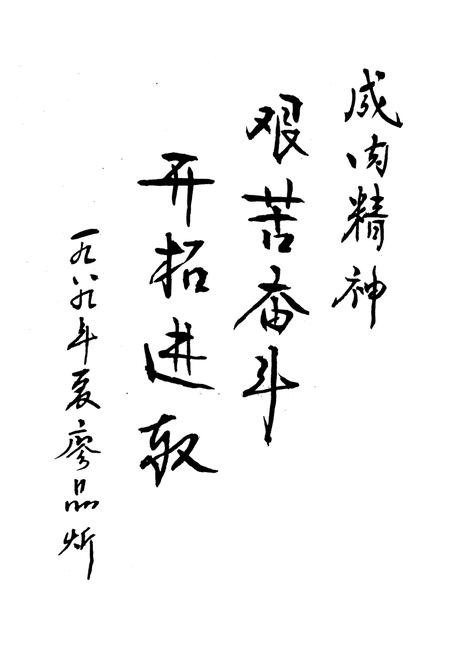 成肉精神
艰苦奋斗
开拓进取
一九八九年夏廖品炘